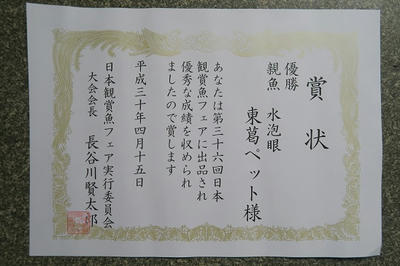 賞状
優勝
親魚 水泡眼
東葛ペット様
あなたは第三十六回日本
観賞魚フェアに出品され
優秀な成績を収められ
ましたので賞します
平成三十年四月十五日
日本観賞魚フェア実行委員会
大会会長 長谷川賢太郎